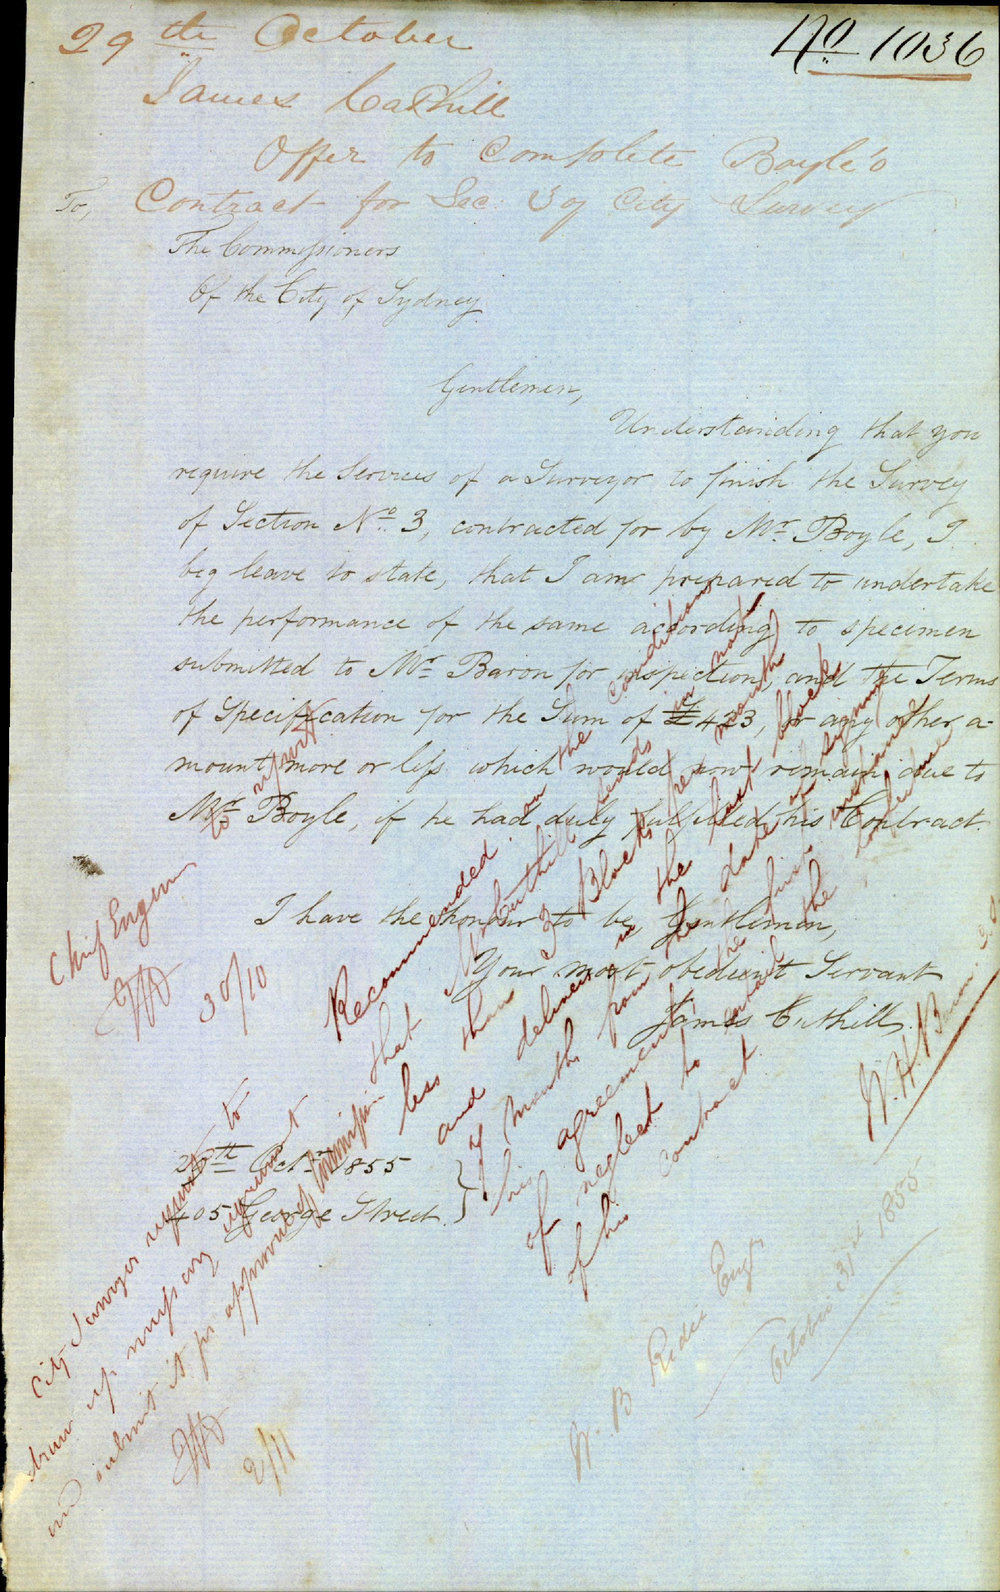 29th October
No 1036
James Cuthill
Offer to Complete Boyle's
Contract for Sec 3 of City Survey
To,
The Commissioners
Of the City of Sydney
Gentlemen,
Understanding that you
require the Services of a Surveyor to finish the Survey
of Section No. 3, contracted for by Mr. Boyle, I
beg leave to state, that I am prepared to undertake
the performance of the same according to specimen
submitted to Mr. Baron for inspection, and the Terms
of Specification for the Sum of £423, or any other a-
mount more or less which would now remain due to
Mr. Boyle, if he had duly fulfilled his Contract.
I have the honour to be, Gentlemen,
Your most obedient Servant
James Cuthill.
29th Octr. 1855
405 George Street.
Chief Engineer
to report
30/10
Recommended on the conditions
that Mr Cuthill sends in not
less than 3 Blocks per month
and delivers in the last block
months from the date of signing
his agreement the first instance
of neglect to entail the forfeiture
of his contract
W. H. Baron
W. B Rider Engr
October 31st 1855
City Surveyor requested to
draw up necessary agreement
and submit it for approval of Commission
2/11